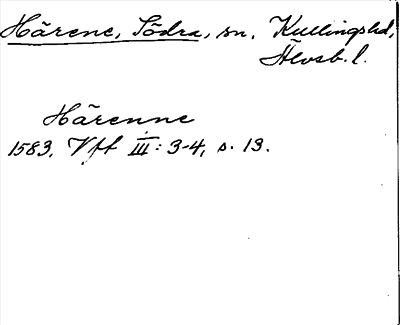 Härene, Södra, sn. Kullingshd,
Älvsb. l.
Härenne
1583. Vff III: 3-4, s. 13.